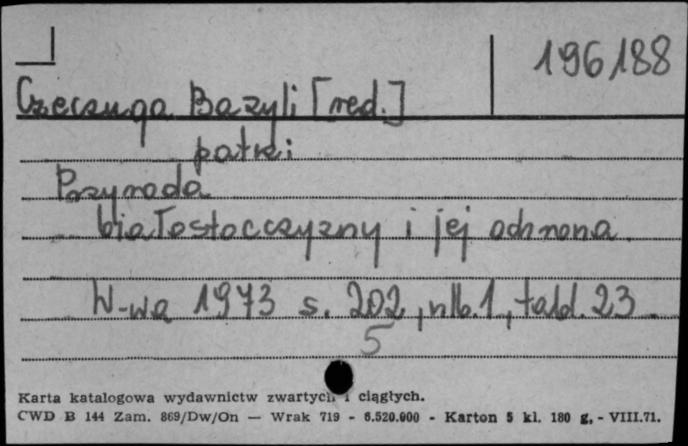 196188
Czeczuga Bazyli [red.]
patrz:
Przyroda
białostocczyzny i jej ochrona.
W-wa 1973 s. 202, nlb. 1, tabl. 23.
5
Karta katalogowa wydawnictw zwartych i ciągłych.
CWD B 144 Zam. 869/Dw/On — Wrak 719 - 6.520.000 - Karton 5 kl. 180 g. - VIII.71.